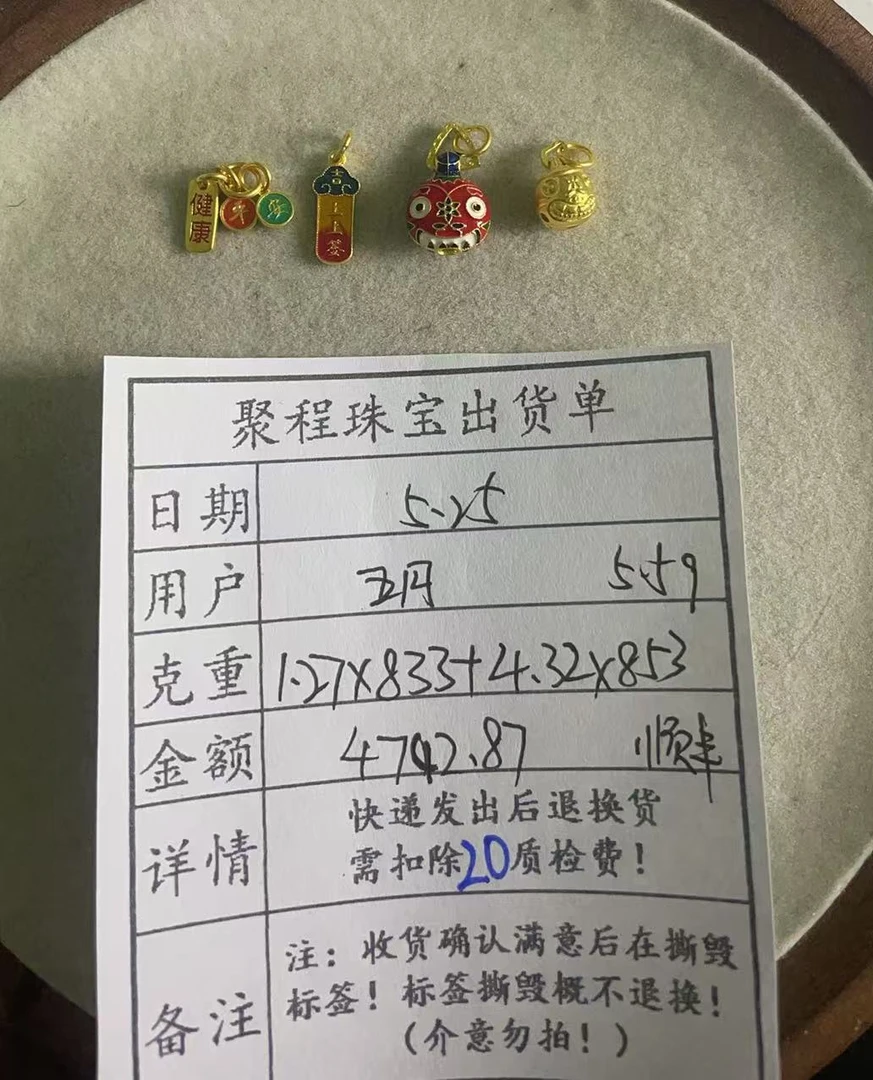 健康
平
安
吉
上上签
聚程珠宝出货单
日期 5.25
用户 五月 5.59
克重 1.27x833+4.32x853
金额 4742.87 顺丰
详情 快递发出后退换货
需扣除20质检费!
备注 注：收货确认满意后在撕毁
标签！标签撕毁概不退换！
(介意勿拍！)